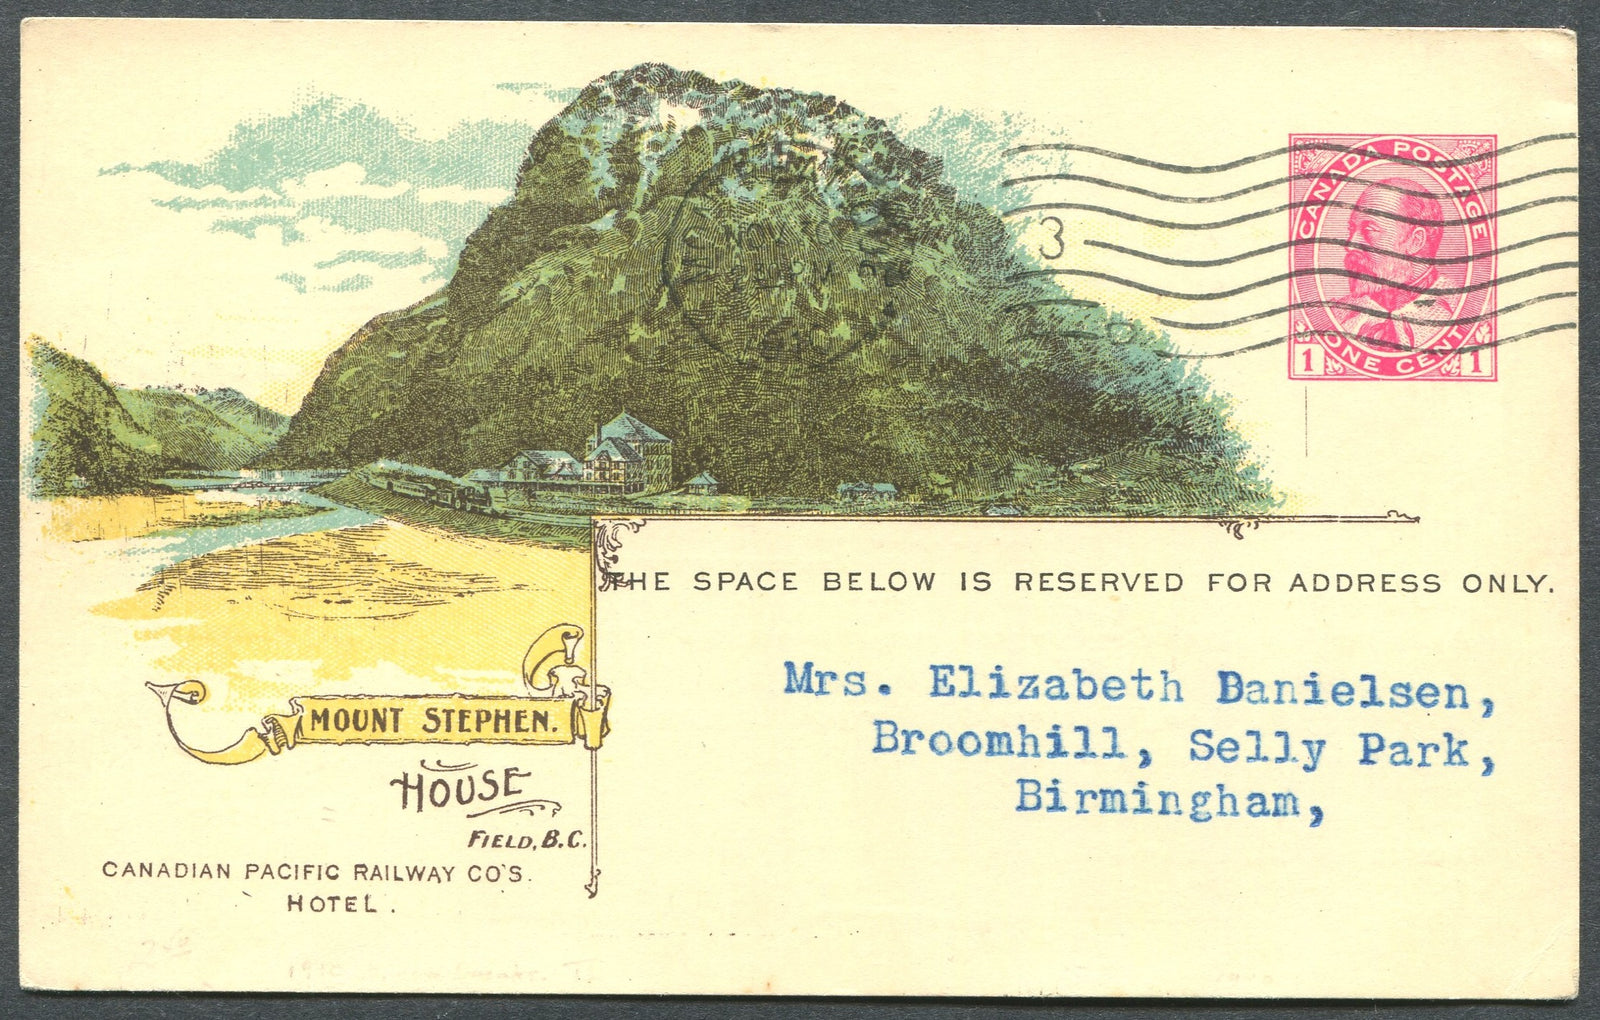 CANADA POSTAGE
ONE CENT
1 1
3
THE SPACE BELOW IS RESERVED FOR ADDRESS ONLY.
Mrs. Elizabeth Danielsen,
Broomhill, Selly Park,
Birmingham,
MOUNT STEPHEN.
HOUSE
FIELD, B.C.
CANADIAN PACIFIC RAILWAY CO'S.
HOTEL.